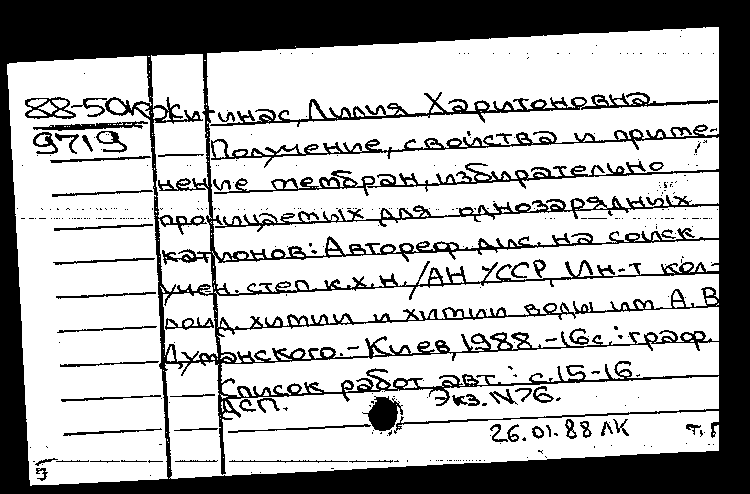 88-50к Жигинас, Лилия Харитоновна.
9719 Получение, свойства и приме-
нение мембран, избирательно
проницаемых для однозарядных
катионов: Автореф. дис. на соиск.
учен. степ. к.х.н. /АН УССР, Ин-т кол-
лоид. химии и химии воды им. А. В.
Думанского. - Киев, 1988. - 16с.: граф.
Список работ авт.: с.15-16.
ДСП. Экз. N76.
26.01.88 ЛК